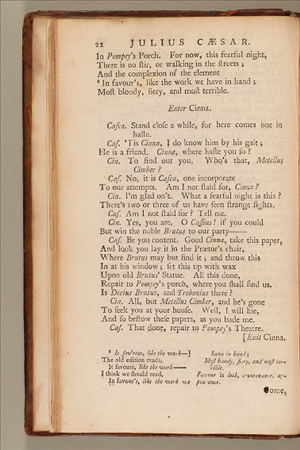 22 JULIUS CÆSAR.
In Pompey's Porch. For now, this fearful night,
There is no ſtir, or walking in the ſtreets;
And the complexion of the element
² In favour's, like the work we have in hand;
Moſt bloody, fiery, and moſt terrible.
Enter Cinna.
Caſca. Stand cloſe a while, for here comes one in
haſte.
Caſ. 'Tis Cinna, I do know him by his gait;
He is a friend. Cinna, where haſte you ſo?
Cin. To find out you. Who's that, Metellus
Cimber?
Caſ. No, it is Caſca, one incorporate
To our attempts. Am I not ſtaid for, Cinna?
Cin. I'm glad on't. What a fearful night is this?
There's two or three of us have ſeen ſtrange ſights.
Caſ. Am I not ſtaid for? Tell me.
Cin. Yes, you are. O Caſſius! if you could
But win the noble Brutus to our party——
Caſ. Be you content. Good Cinna, take this paper,
And look you lay it in the Prætor's chair,
Where Brutus may but find it; and throw this
In at his window; ſet this up with wax
Upon old Brutus' Statue. All this done,
Repair to Pompey's porch, where you ſhall find us.
Is Decius Brutus, and Trebonius there?
Cin. All, but Metellus Cimber, and he's gone
To ſeek you at your houſe. Well, I will hie,
And ſo beſtow theſe papers, as you bade me.
Caſ. That done, repair to Pompey's Theatre.
[Exit Cinna.
² Is fev'rous, like the work—]
The old edition reads,
It favours, like the work——
I think we ſhould read,
In favour's, like the work we
have in hand;
Moſt bloody, fiery, and moſt ter-
rible.
Favour is look, countenance, ap-
pearance.
Come,